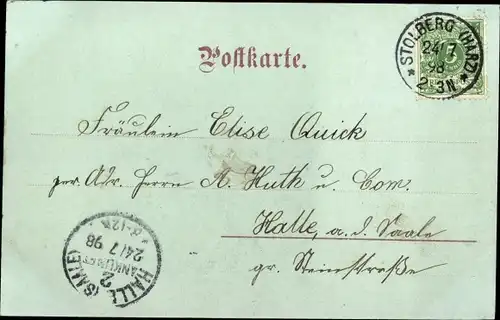 STOLBERG (HARZ)
24/7
98
2-3N
Postkarte.
Fräulein Elise Quick
per Adr. Herrn A. Huth u. Com.
Halle, a. d. Saale
gr. Steinstraße
HALLE (SAALE)
ANKUNFT
24/7 98
8-12N
2